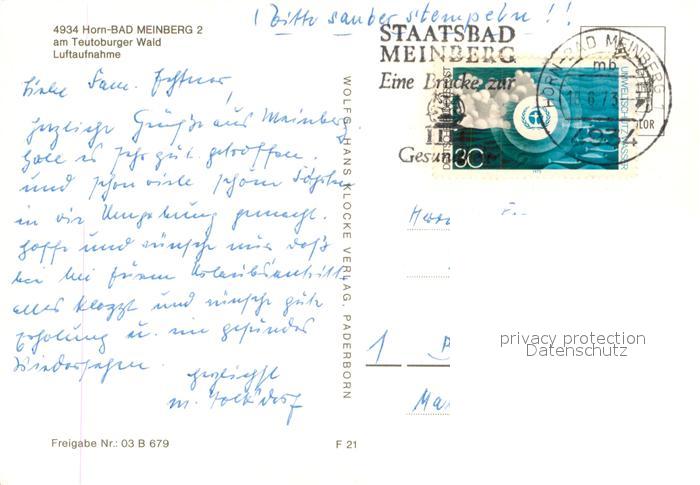 4934 Horn-BAD MEINBERG 2
am Teutoburger Wald
Luftaufnahme
! Bitte sauber stempeln !!
STAATSBAD
MEINBERG
Eine Brücke zur
Gesun
HORN-BAD MEINBERG 1
mb
4934
30
UMWELTSCHUTZ WASSER
Liebe Fam.
herzliche Grüße aus Meinberg
habe es sehr gut getroffen.
und schon viele schöne
in die Umgebung gemacht.
hoffe und wünsche nur daß
bei
alles klappt und wünsche gute
Erholung u. ein gesundes
Wiedersehen.
herzlichst
WOLFG. HANS KLOCKE VERLAG, PADERBORN
Herrn
1
privacy protection
Datenschutz
Freigabe Nr.: 03 B 679
F 21